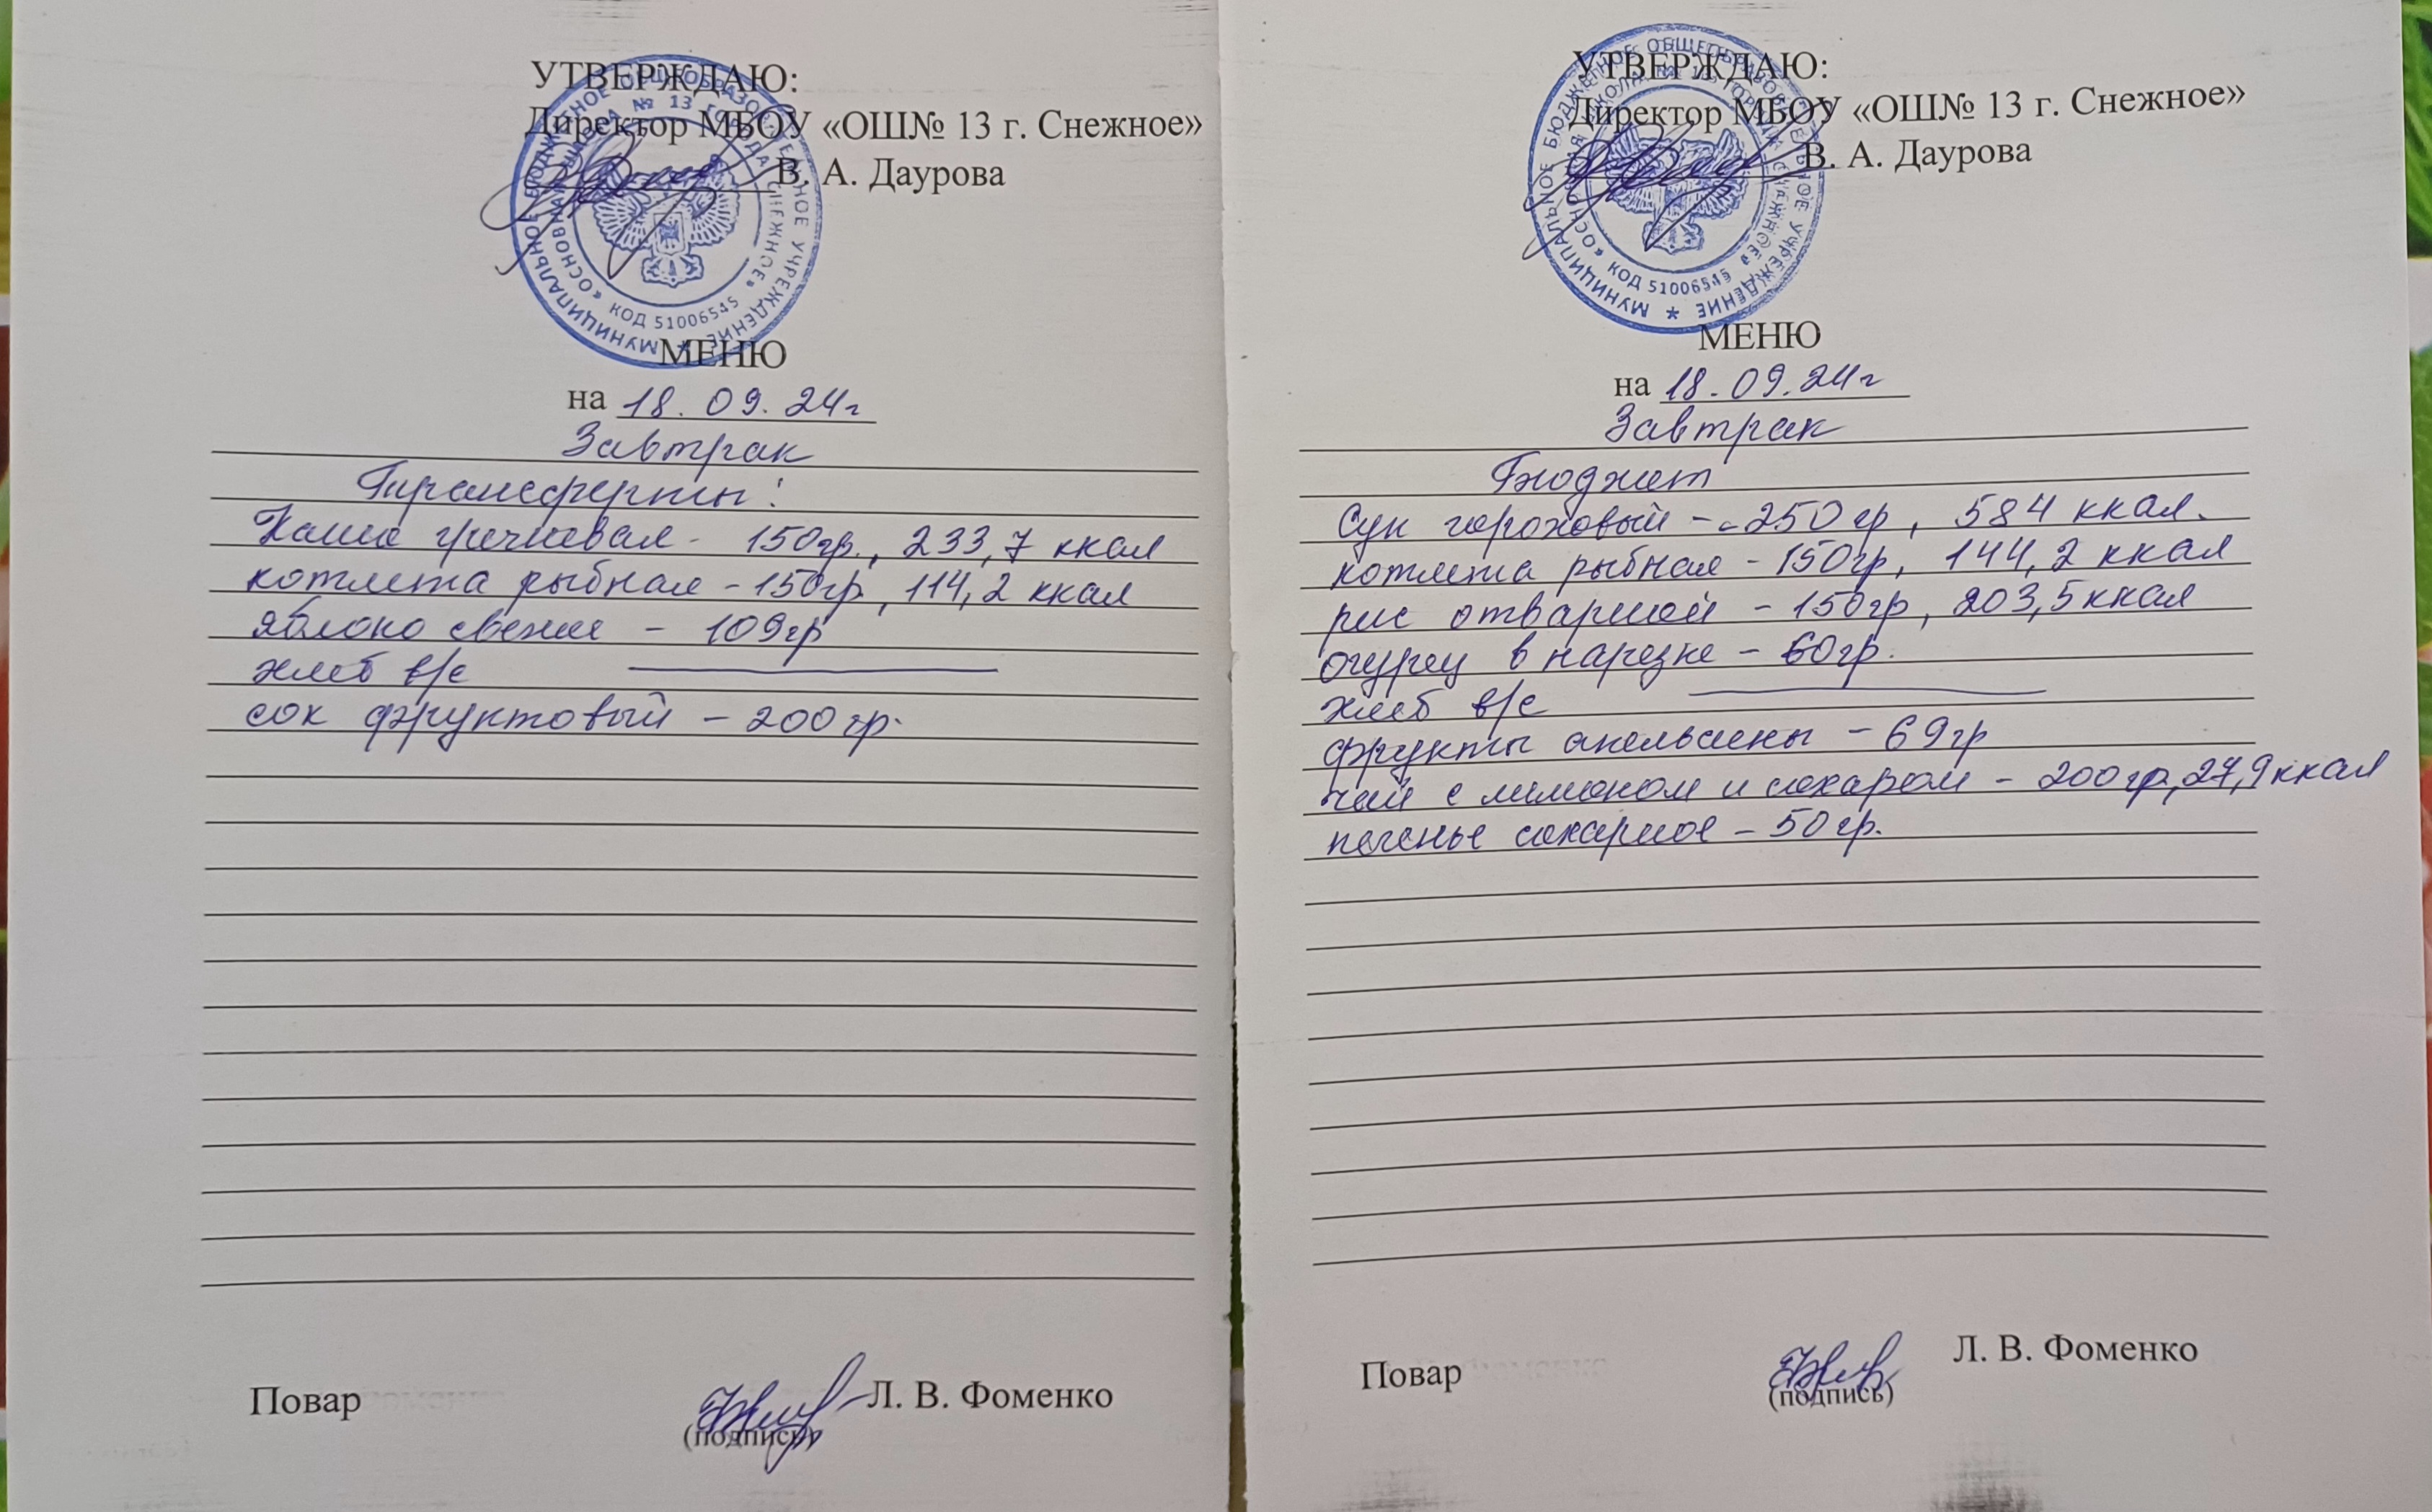 УТВЕРЖДАЮ:
Директор МБОУ «ОШ№ 13 г. Снежное»
В. А. Даурова
МУНИЦИПАЛЬНОЕ БЮДЖЕТНОЕ ОБЩЕОБРАЗОВАТЕЛЬНОЕ УЧРЕЖДЕНИЕ *
«ОСНОВНАЯ ШКОЛА № 13 ГОРОДА СНЕЖНОЕ»
КОД 51006545
МЕНЮ
на 18.09.24г
Завтрак
Трансферты:
Каша гречневая - 150гр., 233,7 ккал
котлета рыбная - 150гр, 114,2 ккал
яблоко свежее - 109гр
хлеб в/с
сок фруктовый - 200гр.
Повар Л. В. Фоменко
(подпись)
УТВЕРЖДАЮ:
Директор МБОУ «ОШ№ 13 г. Снежное»
В. А. Даурова
МУНИЦИПАЛЬНОЕ БЮДЖЕТНОЕ ОБЩЕОБРАЗОВАТЕЛЬНОЕ УЧРЕЖДЕНИЕ *
«ОСНОВНАЯ ШКОЛА № 13 ГОРОДА СНЕЖНОЕ»
КОД 51006545
МЕНЮ
на 18.09.24г
Завтрак
Бюджет
Суп гороховый - 250гр, 584 ккал.
котлета рыбная - 150гр, 144,2 ккал
рис отварной - 150гр, 203,5 ккал
огурец в нарезке - 60гр.
хлеб в/с
фрукты апельсины - 69гр
чай с лимоном и сахаром - 200гр, 27,9 ккал
печенье сахарное - 50гр.
Повар Л. В. Фоменко
(подпись)